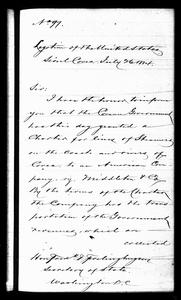 No. 99.
Legation of the United States
Seoul Corea July 26 1884.
Sir:
I have the honor to inform
you that the Corean Government
has this day granted a
Charter for lines of Steamers
on the coast and rivers of
Corea to an American Com-
pany, Middleton & Co.
By the terms of the Charter
the Company has the trans-
portation of the Government
revenues, which are
collected
Hon. Fred'k T. Frelinghuysen
Secretary of State
Washington D.C.